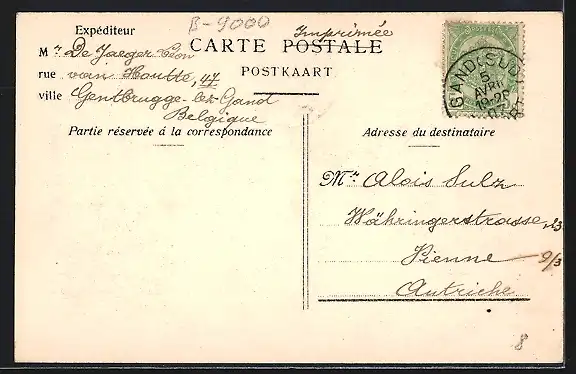 B-9000
Expéditeur
Imprimée
CARTE POSTALE
Mr De Jaeger Léon
POSTKAART
rue van Houtte, 47
ville Gentbrugge-lez-Gand
Belgique
Partie réservée á la correspondance
Adresse du destinataire
GAND (SUD)
5
AVRIL
Mr. Alois Sulz
Währingerstrasse, 23
Vienne 9/3
Autriche
8